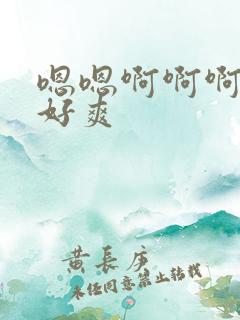 嗯嗯啊啊啊
好爽
黄长庚
未经同意禁止转载